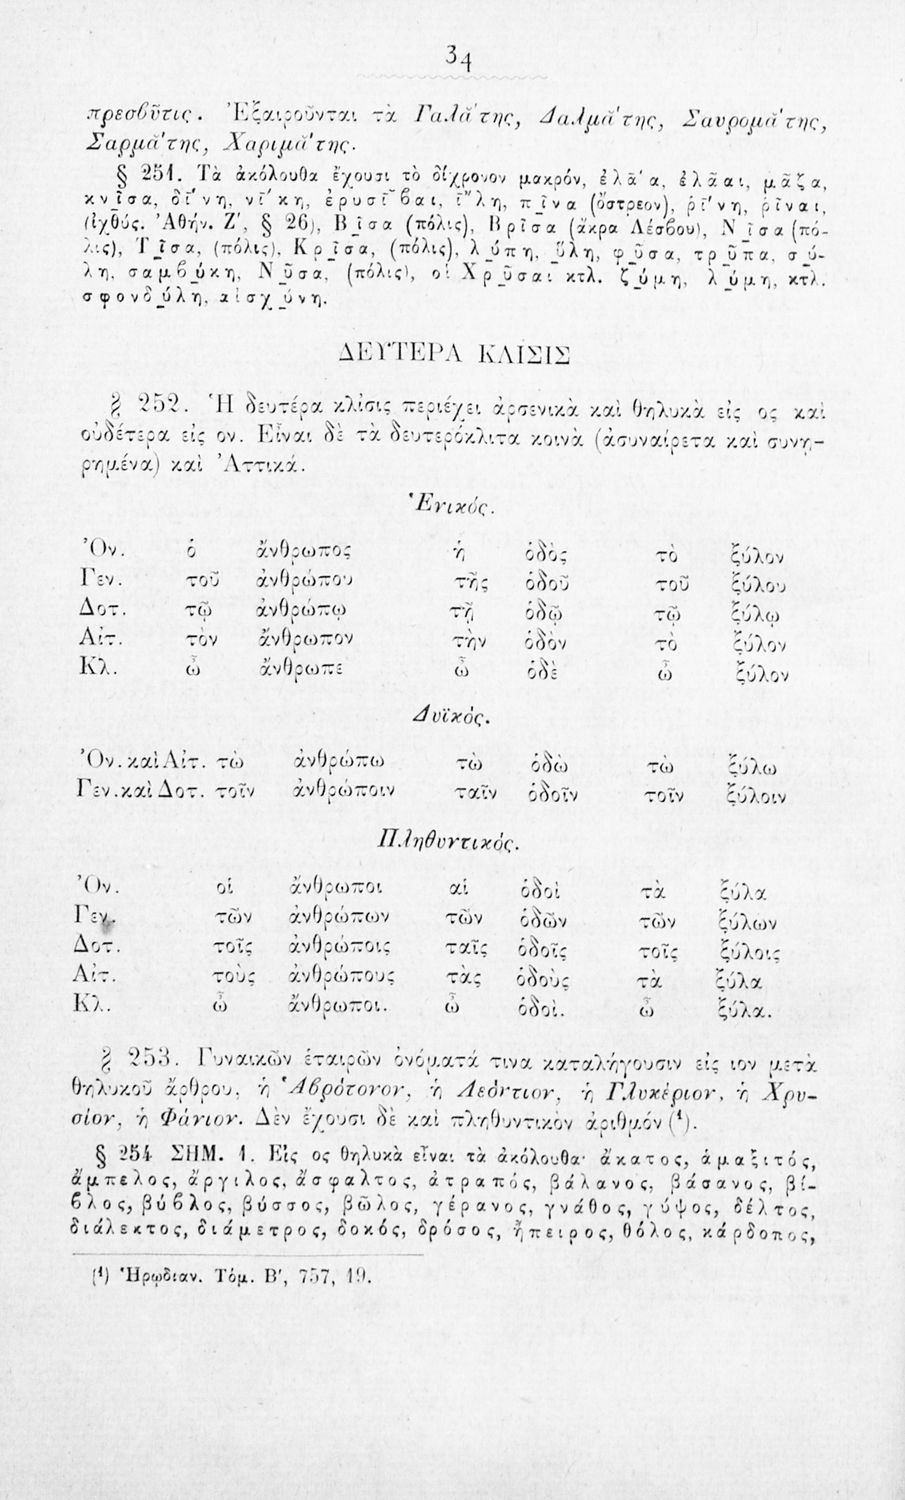 34
πρεσβῦτις. Ἐξαιροῦνται τὰ Γαλᾰ́της, Δαλμᾰ́της, Σαυρομᾰ́της,
Σαρμᾰ́της, Χαριμᾰ́της.
§ 251. Τὰ ἀκόλουθα ἔχουσι τὸ δίχρονον μακρόν, ἐλᾱ́α, ἐλᾶαι, μᾶζα,
κνῖσα, δῑ́νη, νῑ́κη, ἐρυσῖβαι, ἴλη, πῖνα (ὄστρεον), ῥῑ́νη, ῥῖναι,
(ἰχθύς. Ἀθήν. Ζ′, § 26), Βῖσα (πόλις), Βρῖσα (ἄκρα Λέσβου), Νῖσα (πό-
λις), Τῖσα, (πόλις), Κρῖσα, (πόλις), λύπη, ὕλη, φῦσα, τρῦπα, σύ-
λη, σαμβύκη, Νῦσα, (πόλις), οἱ Χρῦσαι κτλ. ζύμη, λύμη, κτλ.
σφονδύλη, αἰσχύνη.
ΔΕΥΤΕΡΑ ΚΛΙΣΙΣ
§ 252. Ἡ δευτέρα κλίσις περιέχει ἀρσενικὰ καὶ θηλυκὰ εἰς ος καὶ
οὐδέτερα εἰς ον. Εἶναι δὲ τὰ δευτερόκλιτα κοινὰ (ἀσυναίρετα καὶ συνῃ-
ρημένα) καὶ Ἀττικά.
Ἑνικός.
Ὀν. ὁ ἄνθρωπος ἡ ὁδὸς τὸ ξύλον
Γεν. τοῦ ἀνθρώπου τῆς ὁδοῦ τοῦ ξύλου
Δοτ. τῷ ἀνθρώπῳ τῇ ὁδῷ τῷ ξύλῳ
Αἰτ. τὸν ἄνθρωπον τὴν ὁδὸν τὸ ξύλον
Κλ. ὦ ἄνθρωπε ὦ ὁδὲ ὦ ξύλον
Δυϊκὸς.
Ὀν. καὶ Αἰτ. τὼ ἀνθρώπω τὼ ὁδὼ τὼ ξύλω
Γεν. καὶ Δοτ. τοῖν ἀνθρώποιν ταῖν ὁδοῖν τοῖν ξύλοιν
Πληθυντικὸς.
Ὀν. οἱ ἄνθρωποι αἱ ὁδοὶ τὰ ξύλα
Γεν. τῶν ἀνθρώπων τῶν ὁδῶν τῶν ξύλων
Δοτ. τοῖς ἀνθρώποις ταῖς ὁδοῖς τοῖς ξύλοις
Αἰτ. τοὺς ἀνθρώπους τὰς ὁδοὺς τὰ ξύλα
Κλ. ὦ ἄνθρωποι. ὦ ὁδοί. ὦ ξύλα.
§ 253. Γυναικῶν ἑταιρῶν ὀνόματά τινα καταλήγουσιν εἰς ιον μετὰ
θηλυκοῦ ἄρθρου, ἡ Ἁβρότονον, ἡ Λεόντιον, ἡ Γλυκέριον, ἡ Χρυ-
σίον, ἡ Φάνιον. Δὲν ἔχουσι δὲ καὶ πληθυντικὸν ἀριθμόν (¹).
§ 254 ΣΗΜ. 1. Εἰς ος θηλυκὰ εἶναι τὰ ἀκόλουθα· ἄκατος, ἁμαξιτός,
ἄμπελος, ἄργιλος, ἄσφαλτος, ἀτραπός, βάλανος, βάσανος, βί-
βλος, βύβλος, βύσσος, βῶλος, γέρανος, γνάθος, γύψος, δέλτος,
διάλεκτος, διάμετρος, δοκός, δρόσος, ἤπειρος, θόλος, κάρδοπος,
(¹) Ἡρῳδιαν. Τόμ. Β′, 757, 19.